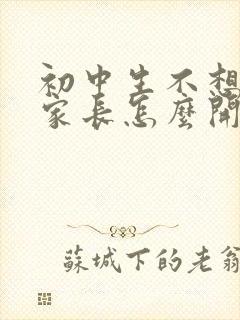 初中生不想
家长怎麼開
蘇城下的老翁